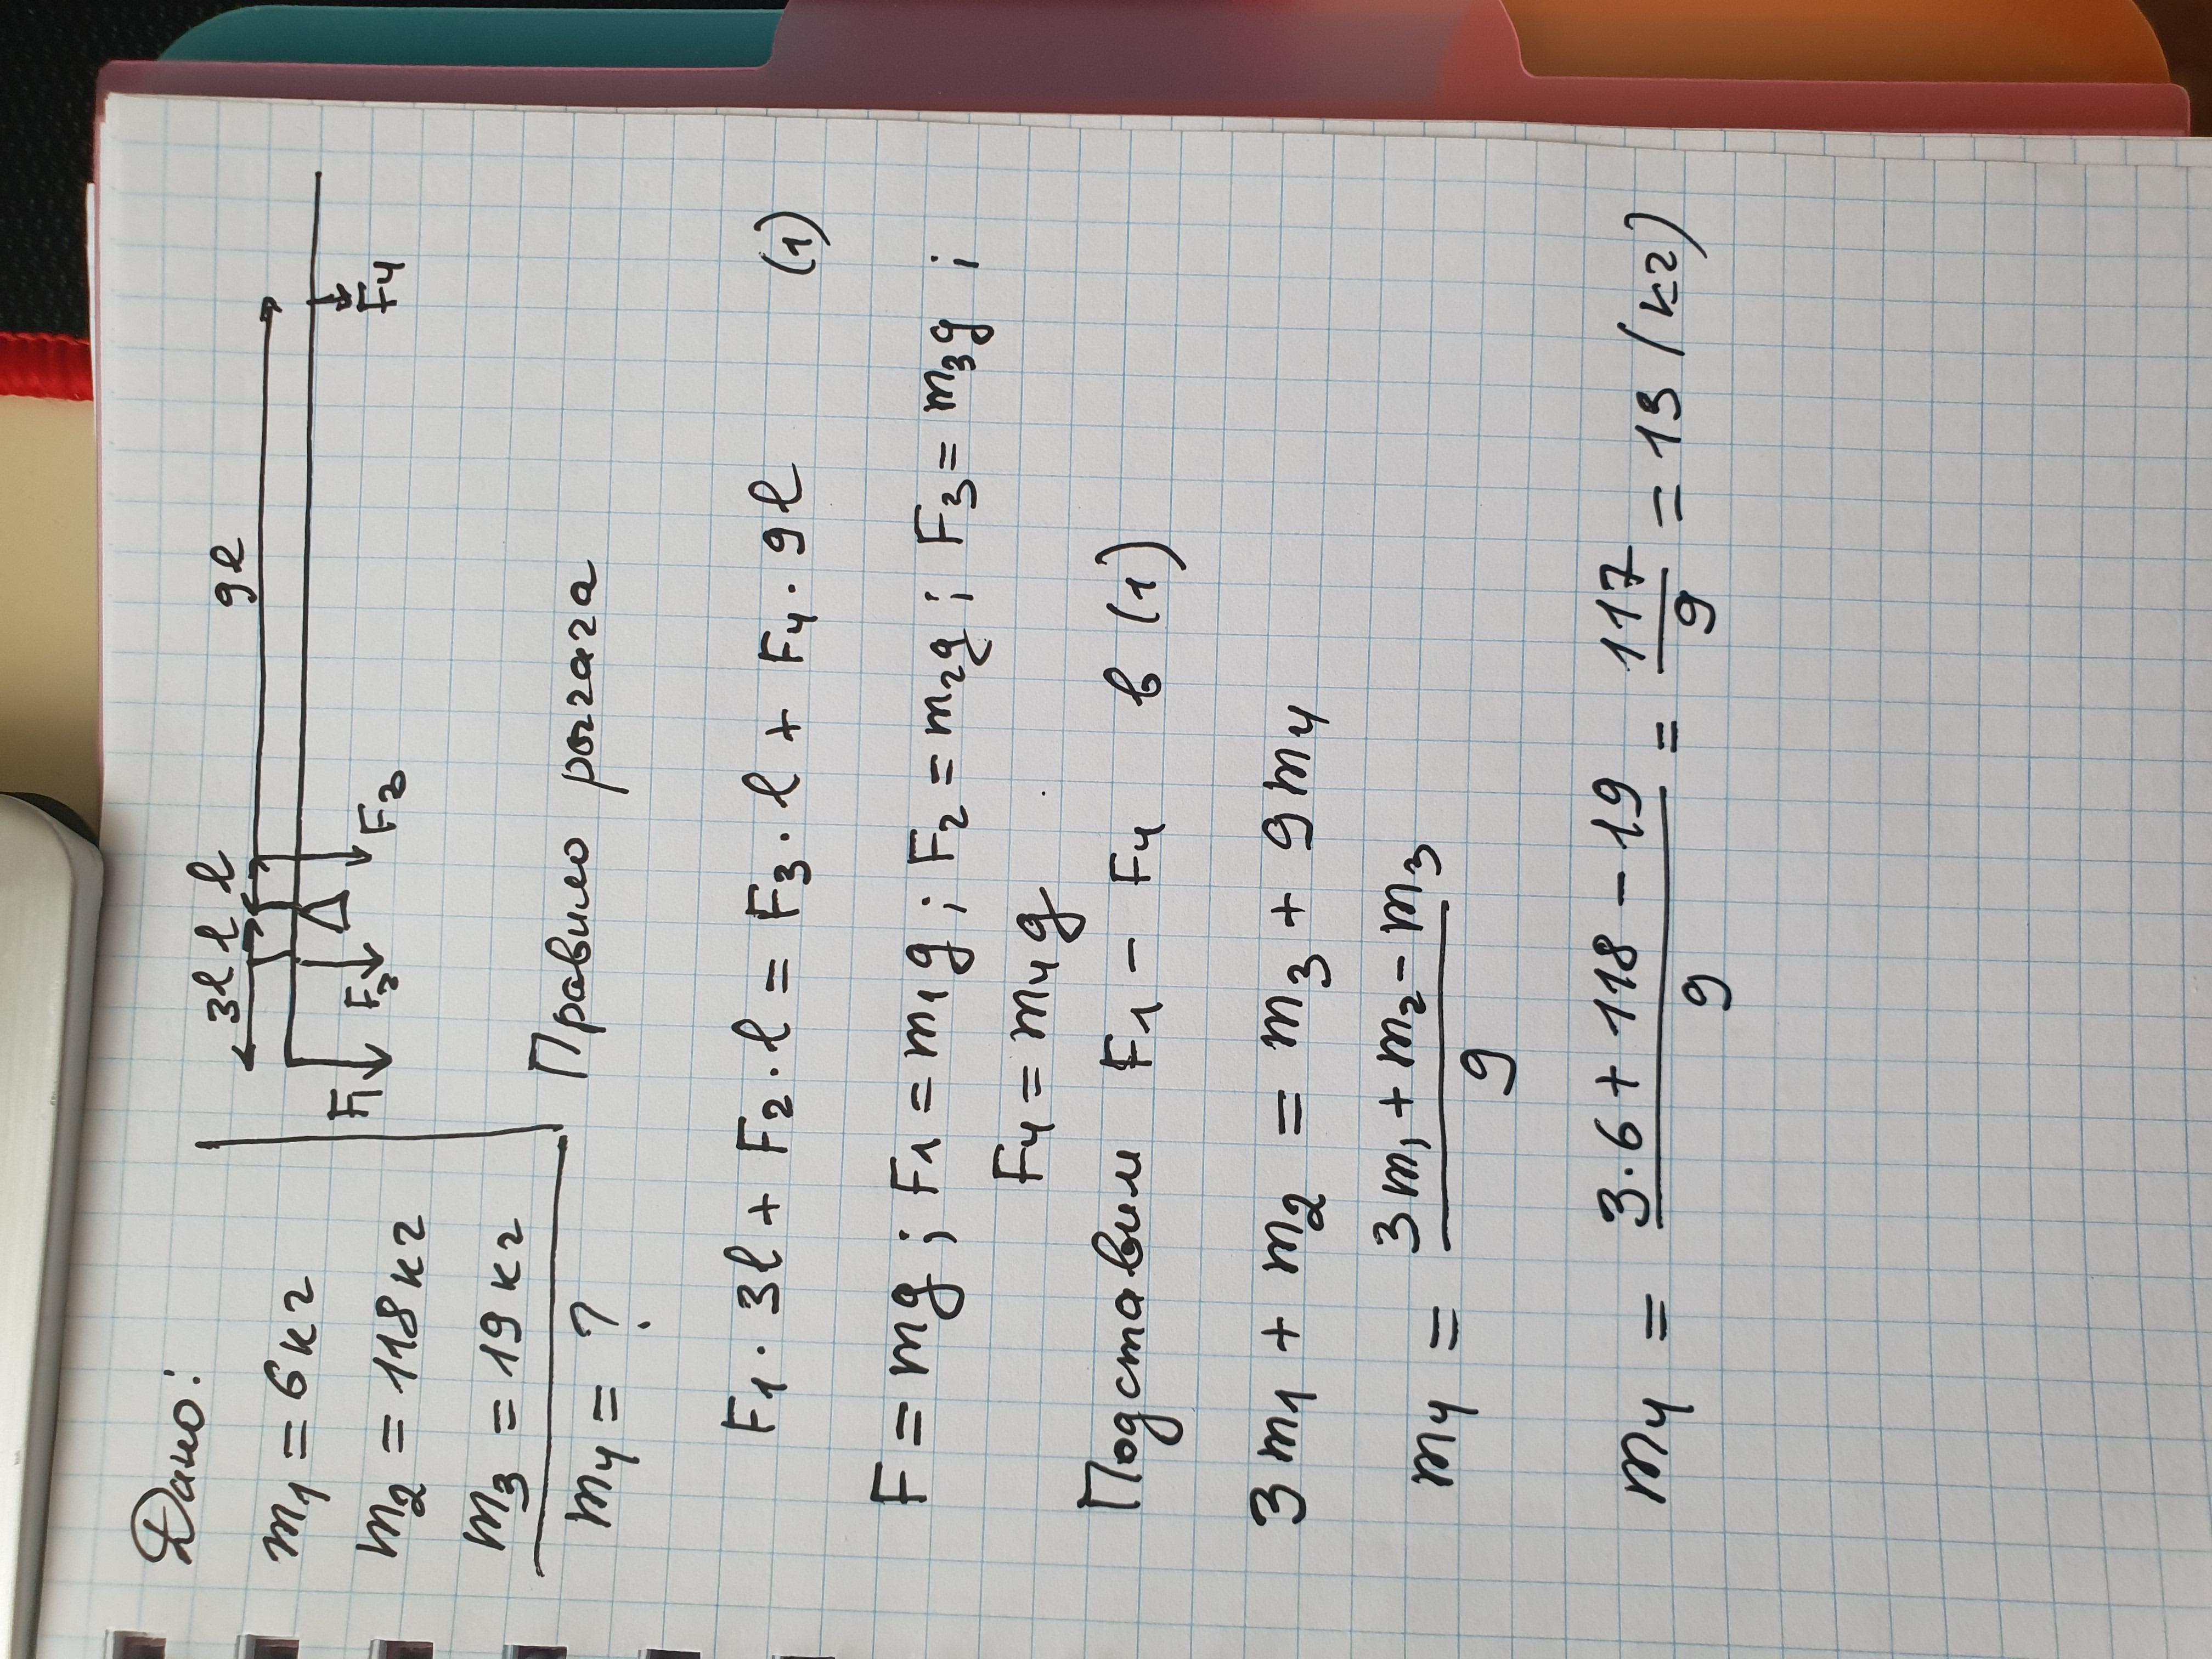 Дано:
m₁ = 6 кг
m₂ = 118 кг
m₃ = 19 кг
m₄ = ?
3l l l 9l
F₁ F₂ F₃ F₄
Правило рычага
F₁ · 3l + F₂ · l = F₃ · l + F₄ · 9l (1)
F = mg ; F₁ = m₁g ; F₂ = m₂g ; F₃ = m₃g ;
F₄ = m₄g
Подставим F₁ – F₄ в (1)
3m₁ + m₂ = m₃ + 9m₄
m₄ = (3m₁ + m₂ - m₃)/9
m₄ = (3·6 + 118 - 19)/9 = 117/9 = 13 (кг)